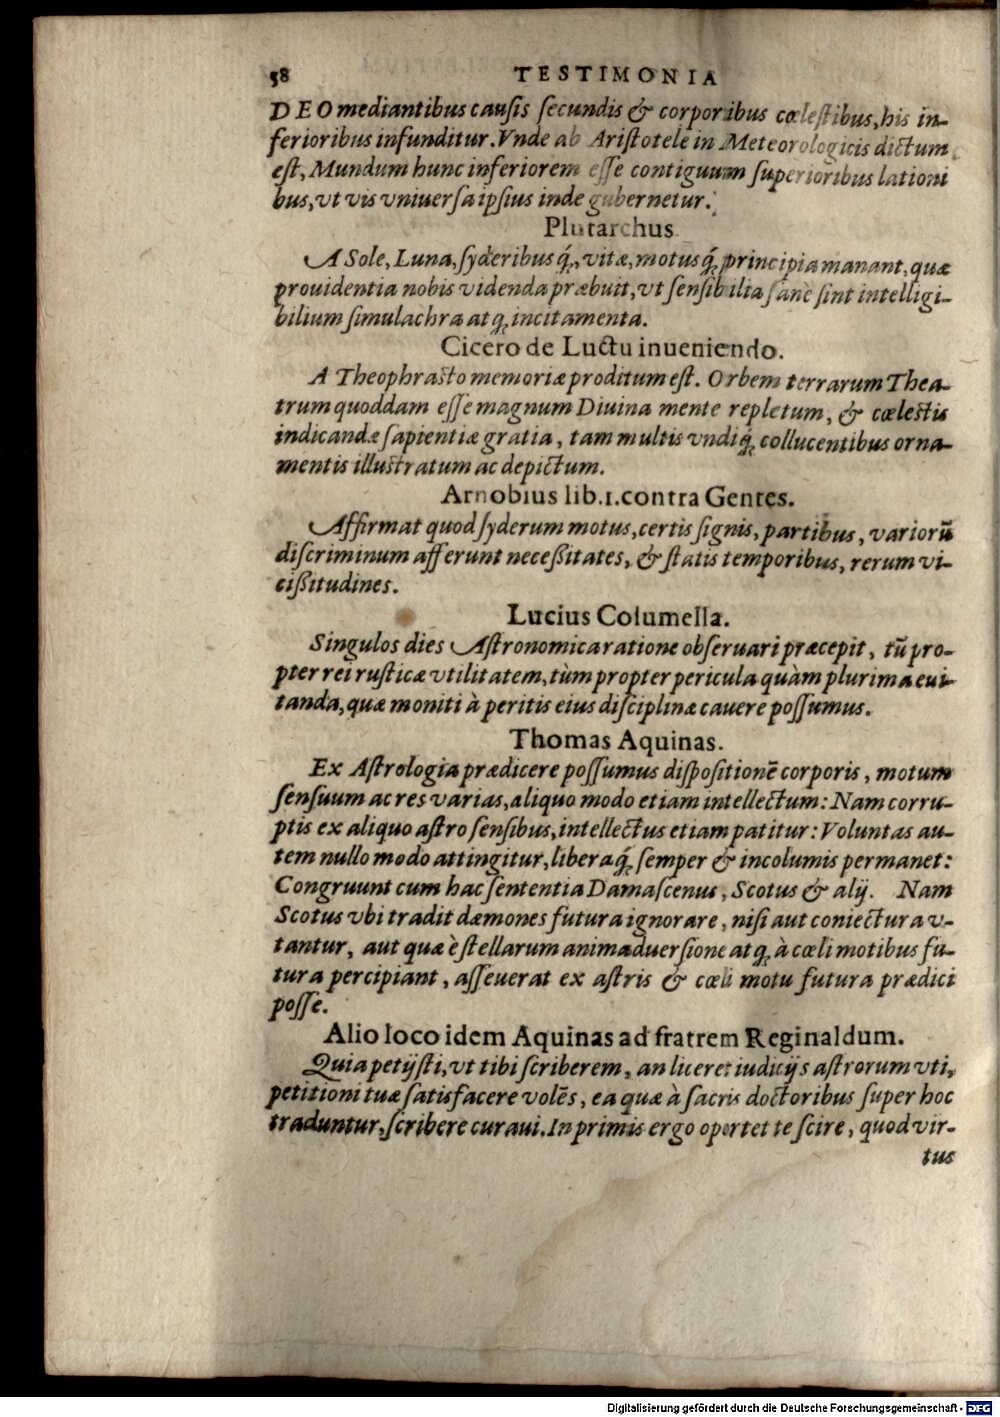 58 TESTIMONIA
DEO mediantibus causis ſecundis & corporibus cœleſtibus, his in-
ferioribus infunditur. Vnde ab Ariſtotele in Meteorologicis dictum
eſt, Mundum hunc inferiorem eſſe contiguum ſuperioribus lationi
bus, vt vis vniuerſa ipſius inde gubernetur.
Plutarchus.
A Sole, Luna, ſyderibusq́;, vitæ, motusq́; principia manant, quæ
prouidentia nobis videnda præbuit, vt ſenſibilia ſanè ſint intelligi-
bilium ſimulachra atq; incitamenta.
Cicero de Luctu inueniendo.
A Theophraſto memoriæ proditum eſt. Orbem terrarum Thea-
trum quoddam eſſe magnum Diuina mente repletum, & cœleſtis
indicandæ ſapientiæ gratia, tam multis vndiq́; collucentibus orna-
mentis illuſtratum ac depictum.
Arnobius lib.1.contra Gentes.
Affirmat quod ſyderum motus, certis ſignis, partibus, variorū
diſcriminum afferunt neceßitates, & ſtatis temporibus, rerum vi-
cißitudines.
Lucius Columella.
Singulos dies Aſtronomica ratione obſeruari præcepit, tū pro-
pter rei ruſticæ vtilitatem, tùm propter pericula quàm plurima eui-
tanda, quæ moniti à peritis eius diſciplinæ cauere poſſumus.
Thomas Aquinas.
Ex Aſtrologia prædicere poſſumus diſpoſitionē corporis, motum
ſenſuum ac res varias, aliquo modo etiam intellectum: Nam corru-
ptis ex aliquo aſtro ſenſibus, intellectus etiam patitur: Voluntas au-
tem nullo modo attingitur, liberaq́; ſemper & incolumis permanet:
Congruunt cum hac ſententia Damaſcenus, Scotus & alij. Nam
Scotus vbi tradit dæmones futura ignorare, niſi aut coniectura v-
tantur, aut quæ è ſtellarum animaduerſione atq; à cœli motibus fu-
tura percipiant, aſſeuerat ex aſtris & cœli motu futura prædici
poſſe.
Alio loco idem Aquinas ad fratrem Reginaldum.
Quia petijſti, vt tibi ſcriberem, an liceret iudicijs aſtrorum vti,
petitioni tuæ ſatisfacere volēs, ea quæ à ſacris doctoribus ſuper hoc
traduntur, ſcribere curaui. In primis ergo oportet te ſcire, quod vir-
tus
Digitalisierung gefördert durch die Deutsche Forschungsgemeinschaft - DFG